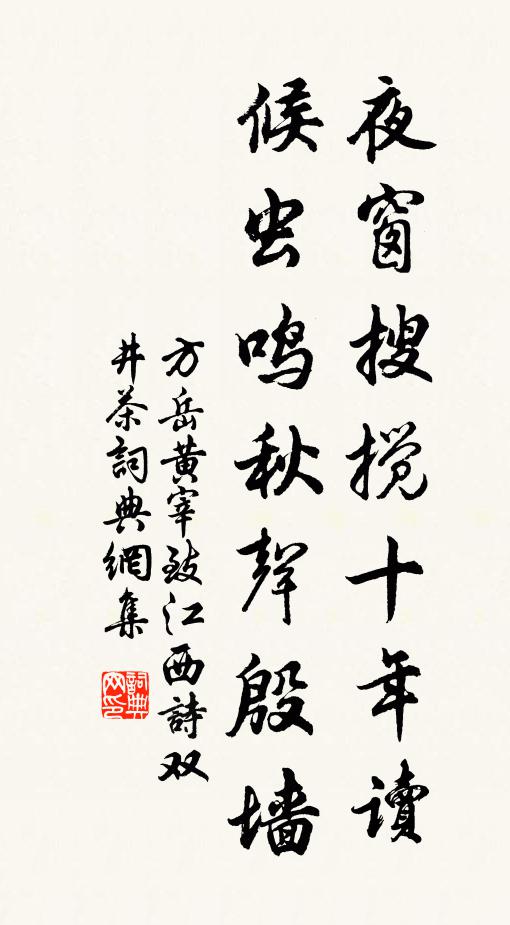 夜窗搜揽十年读
候虫鸣秋声殷墙
方岳黄宰致江西詩双
井茶詞典網集
詞典网印